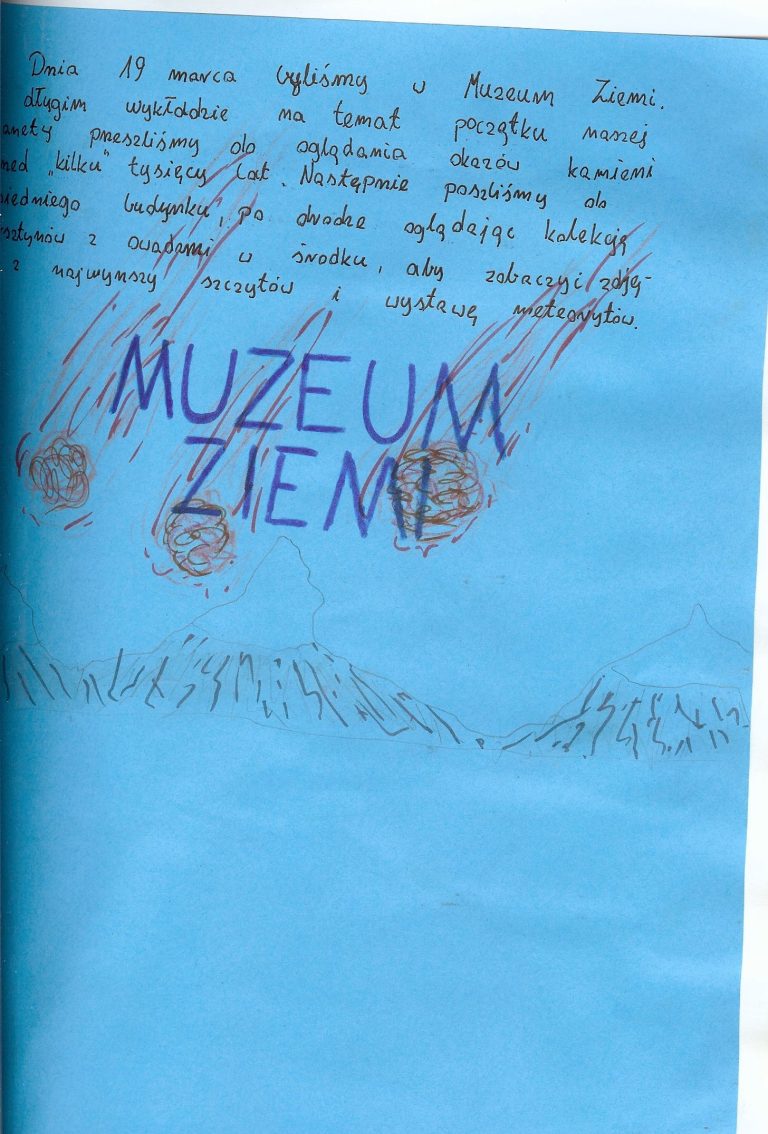 Dnia 19 marca byliśmy w Muzeum Ziemi.
długim wykładzie na temat początku naszej
anety przeszliśmy do oglądania okazów kamieni
zed „kilku" tysięcy lat. Następnie poszliśmy do
siedniego budynku, po drodze oglądając kolekcją
rsztynów z owadami w środku, aby zobaczyć zdję-
z najwyższy szczytów i wystawę meteorytów.
MUZEUM
ZIEMI